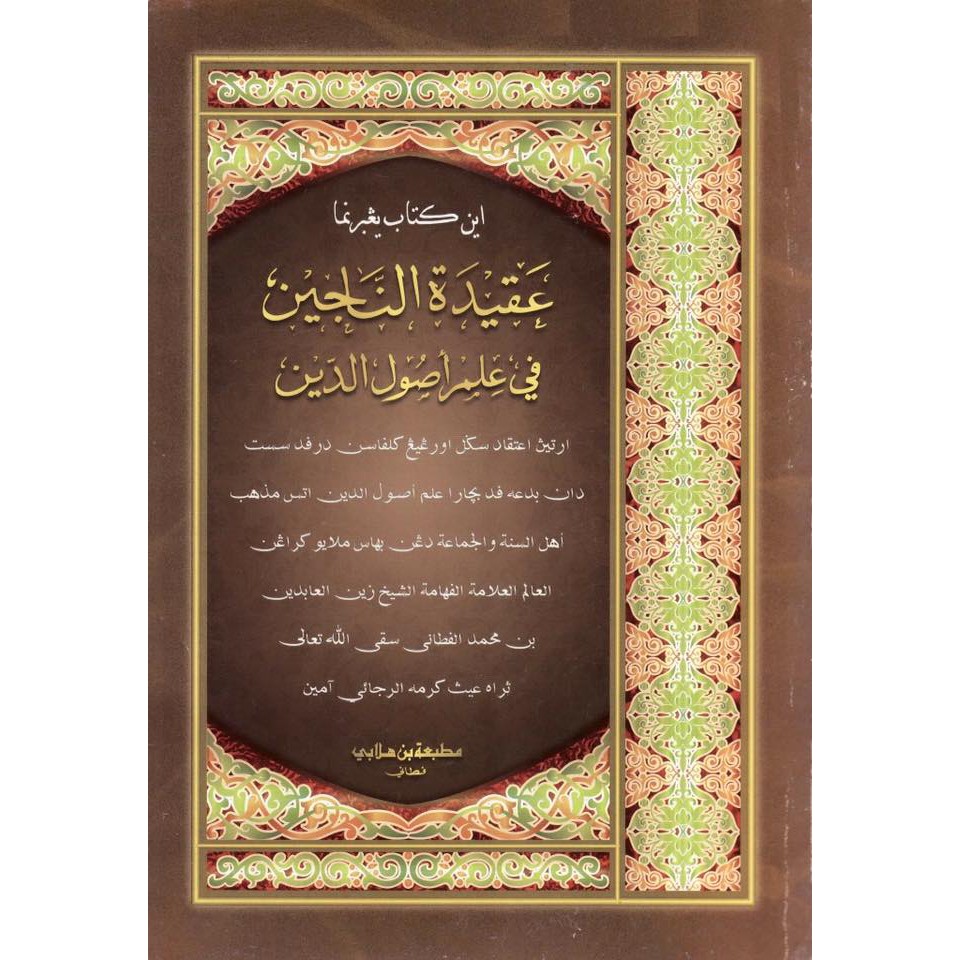 اين كتاب يڠبرنما
عَقِيْدَةُ النَّاجِيْن
فِي عِلْمِ أُصُولِ الدِّيْن
ارتيڽ اعتقاد سكل اورڠيڠ كلفاسن درفد سست
دان بدعه فد بچارا علم أصول الدين اتس مذهب
أهل السنة والجماعة دڠن بهاس ملايو كراڠن
العالم العلامة الفهامة الشيخ زين العابدين
بن محمد الفطاني سقى الله تعالى
ثراه غيث كرمه الرجائي آمين
مطبعة بن هلابي
فطاني